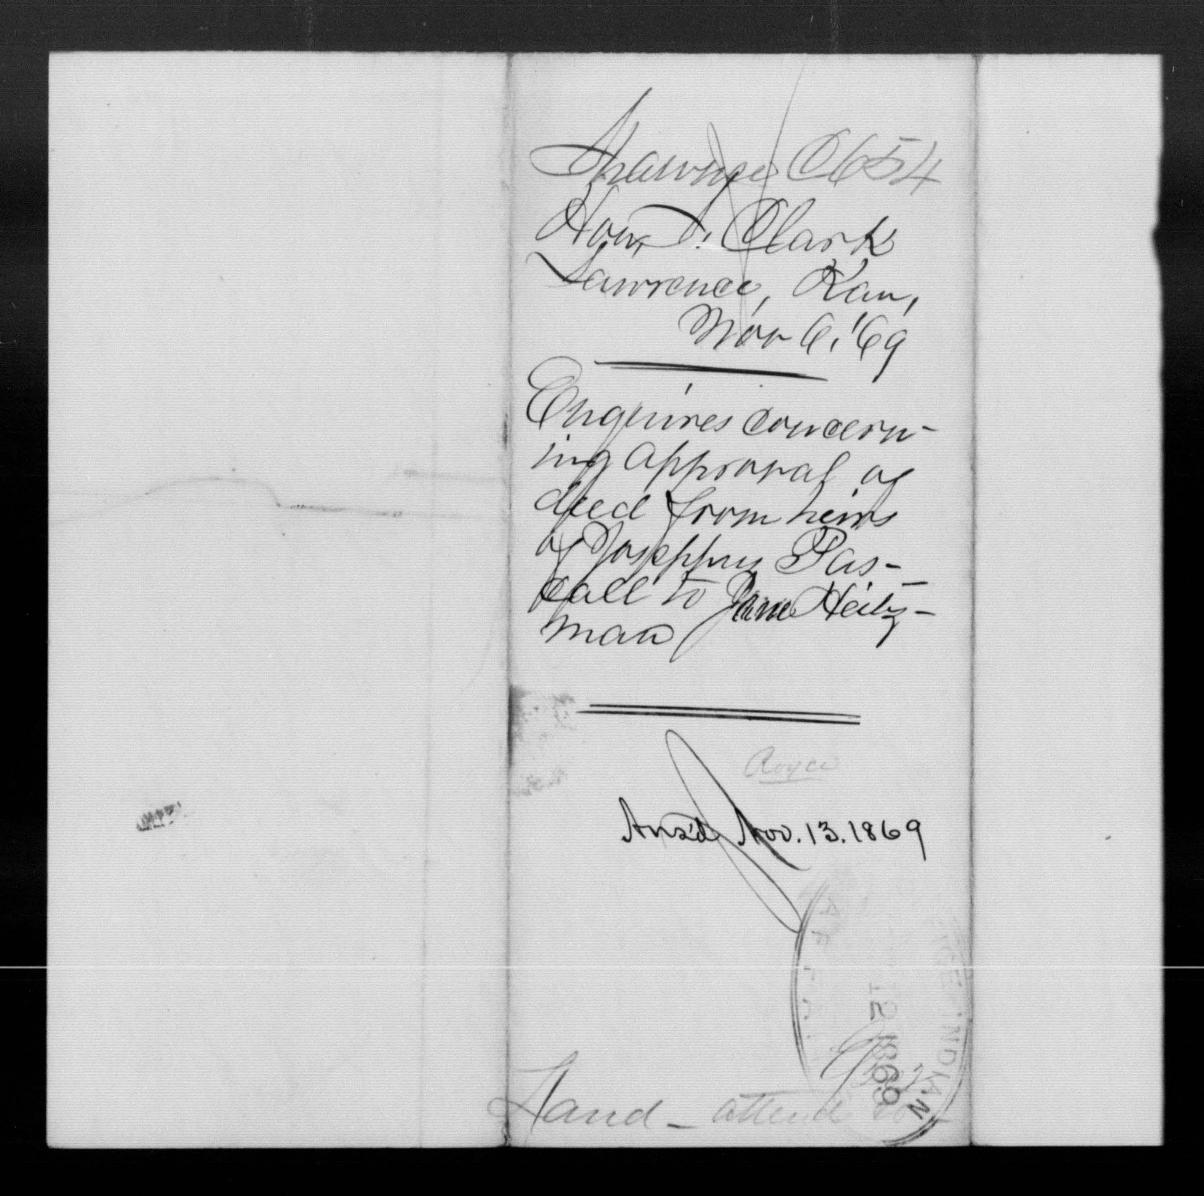 Shawnee C654
Hon S. Clark
Lawrence, Kan,
Nov 6, '69
Enquires concern-
ing approval of
deed from heirs
of Josephus Pas-
call to Jane Heitz-
man
Royce
Ansd Nov. 13. 1869
OFFICE INDIAN
AFFAIRS
12 1869
Land - attend